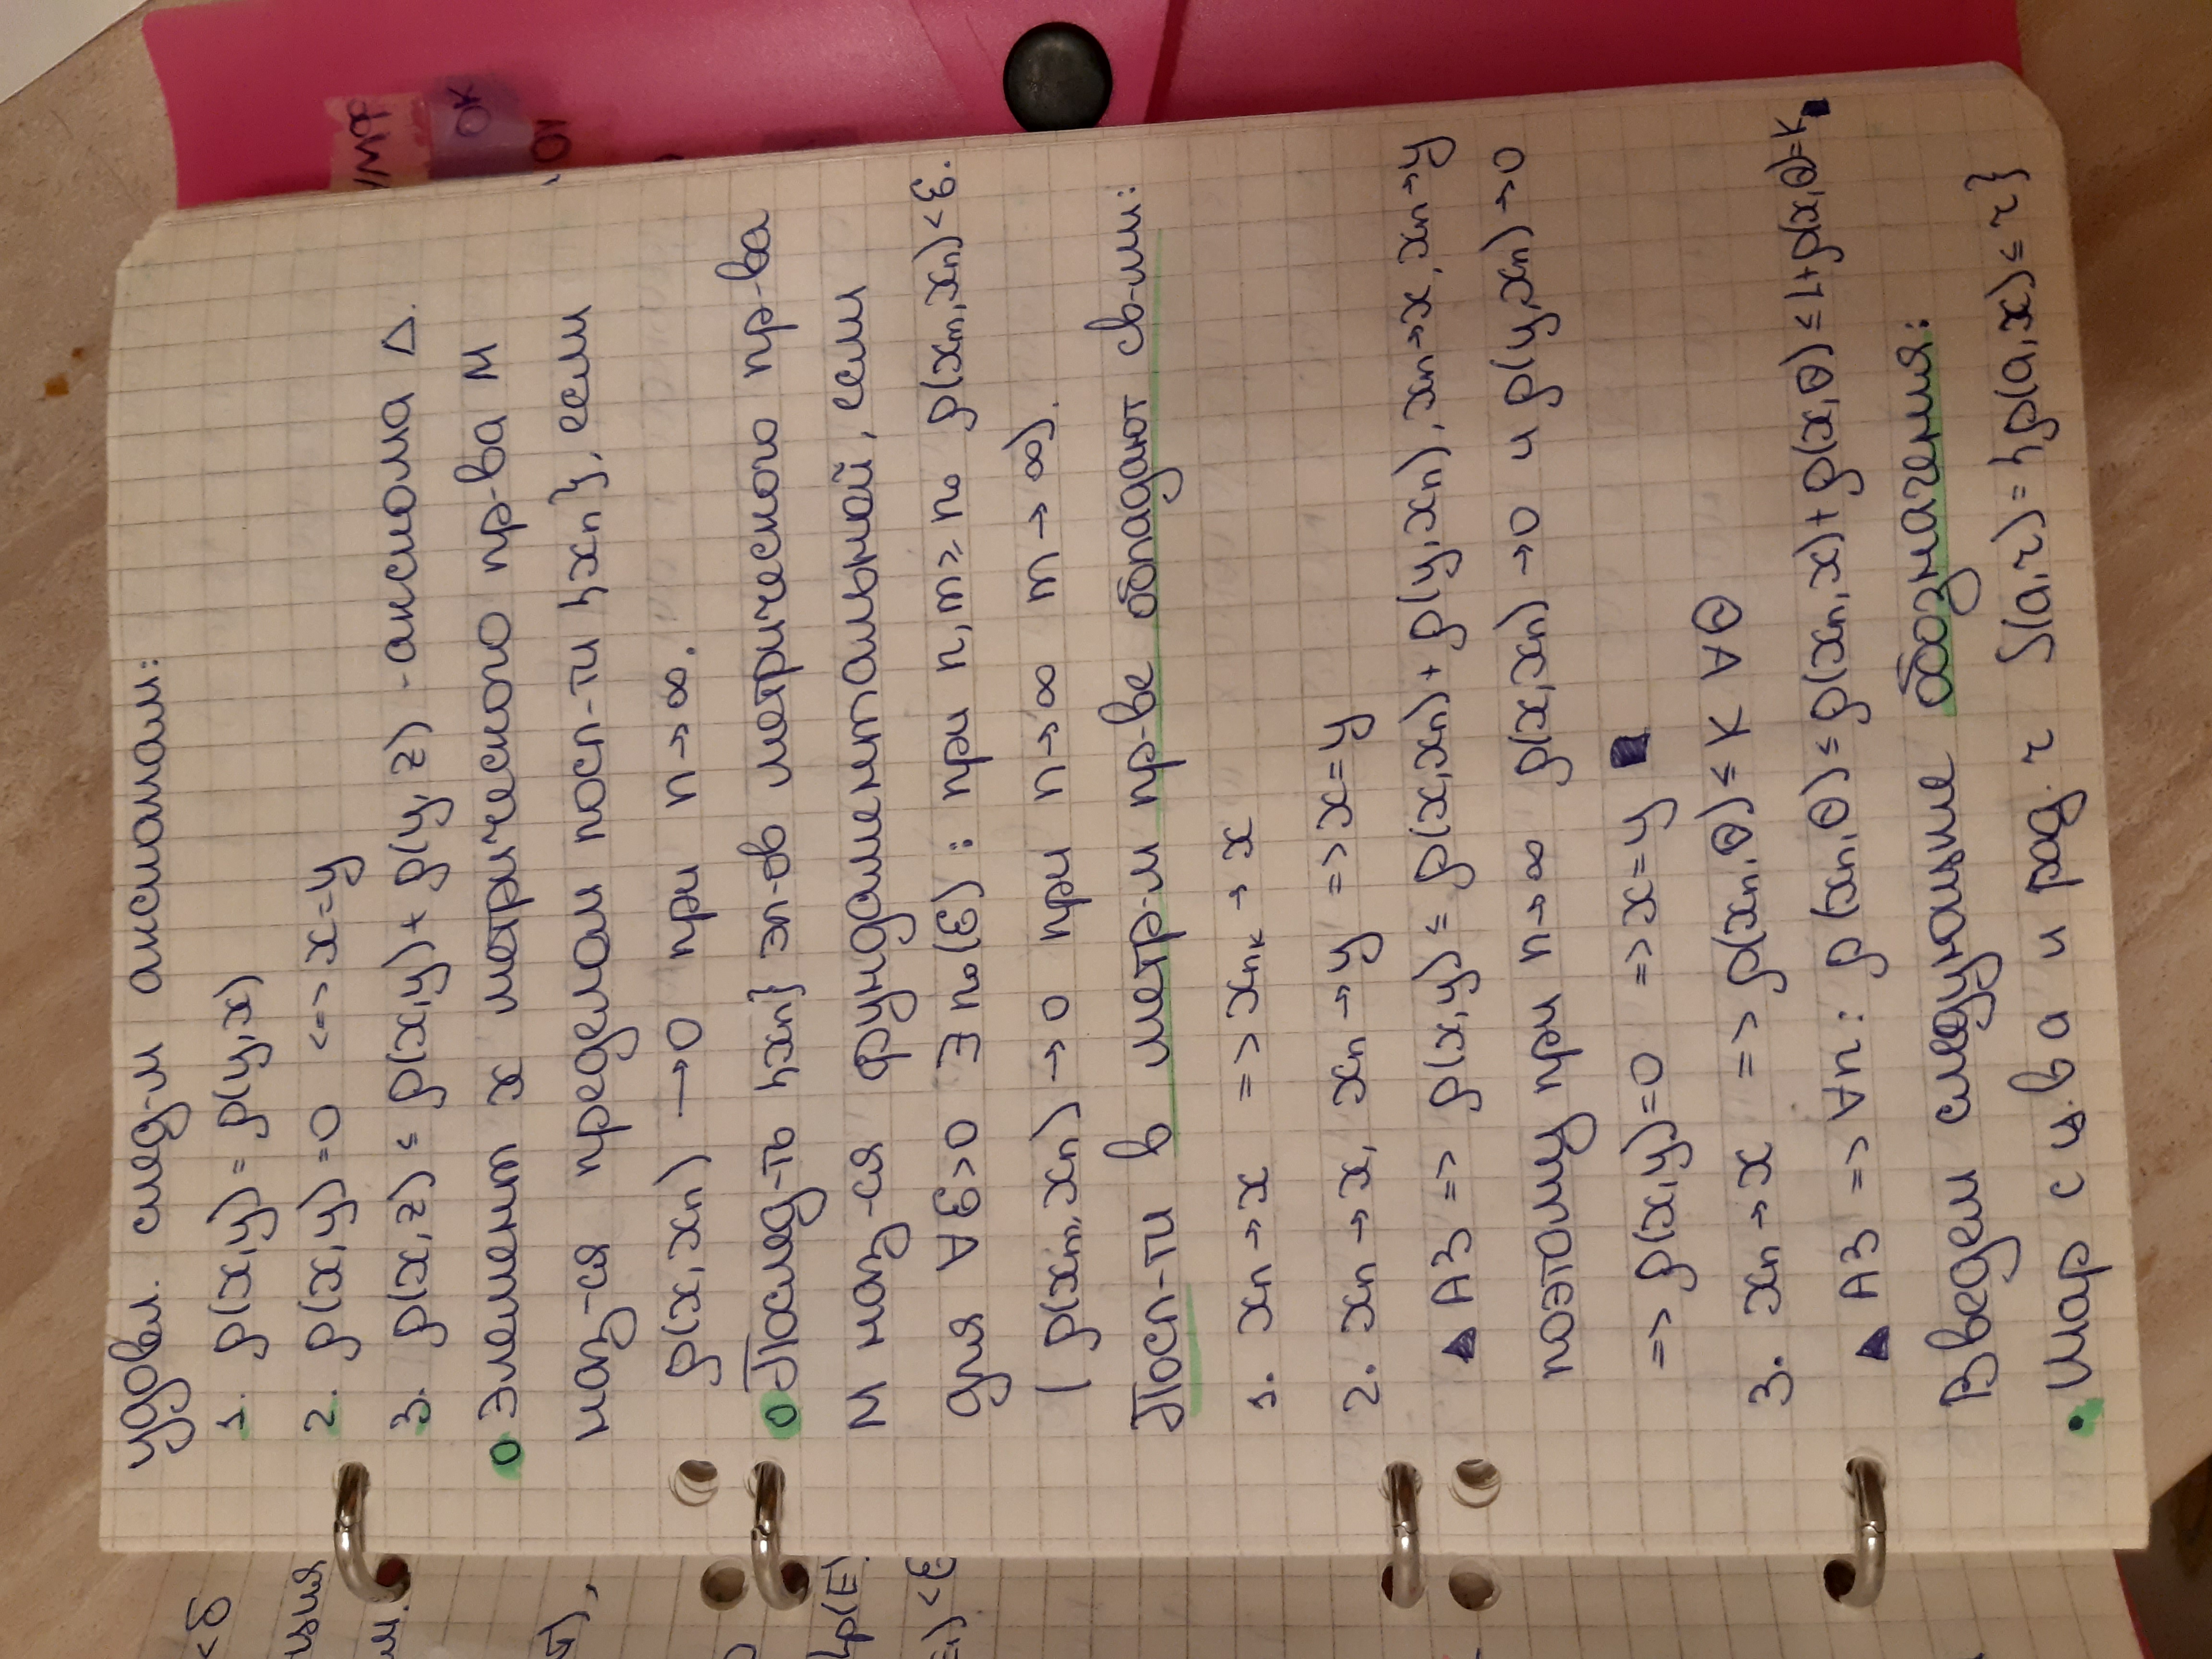 удовл. след-м аксиомам:
1. ρ(x,y) = ρ(y,x)
2. ρ(x,y)=0 <=> x=y
3. ρ(x,z) ≤ ρ(x,y) + ρ(y,z) - аксиома Δ.
0 Элемент x метрического пр-ва М
наз-ся пределом посл-ти {xn}, если
ρ(x,xn) →0 при n→∞.
0 Послед-ть {xn} эл-ов метрического пр-ва
М наз-ся фундаментальной, если
для ∀ε>0 ∃ n₀(ε) : при n,m ≥ n₀ ρ(xm,xn)<ε.
( ρ(xm,xn) →0 при n→∞ m→∞).
Посл-ти в метр-м пр-ве обладают св-ми:
1. xn→x => xnk → x
2. xn→x, xn→y => x=y
▲ А3 => ρ(x,y) ≤ ρ(x,xn) + ρ(y,xn), xn→x, xn→y
поэтому при n→∞ ρ(x,xn) →0 и ρ(y,xn)→0
=> ρ(x,y)=0 => x=y ■
3. xn→x => ρ(xn,θ) ≤ K ∀θ
▲ А3 => ∀n: ρ(xn,θ) ≤ ρ(xn,x)+ρ(x,θ) ≤ 1+ρ(x,θ)=K ■
Введем следующие обозначения:
• шар с ц. в a и рад. r S(a,r) = {ρ(a,x) ≤ r}
<δ
ρ(E)
)<ε